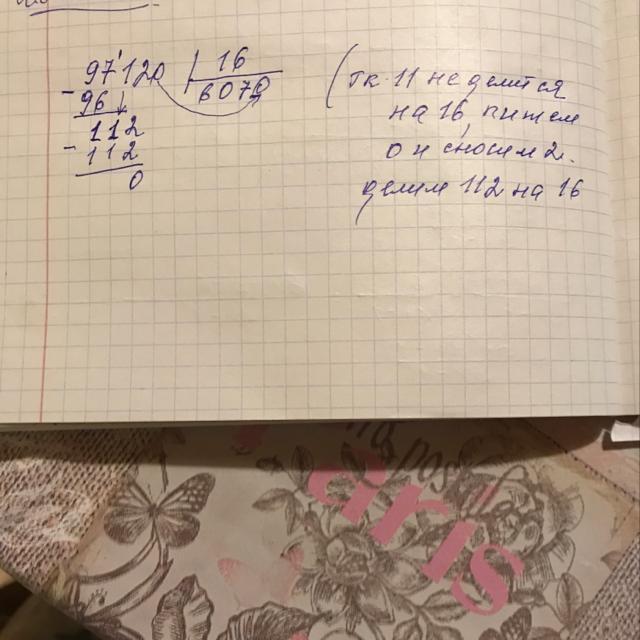 97'120 | 16
- 96
6070
112
- 112
0
(т.к. 11 не делится
на 16 пишем
0 и сносим 2.
делим 112 на 16
Paris